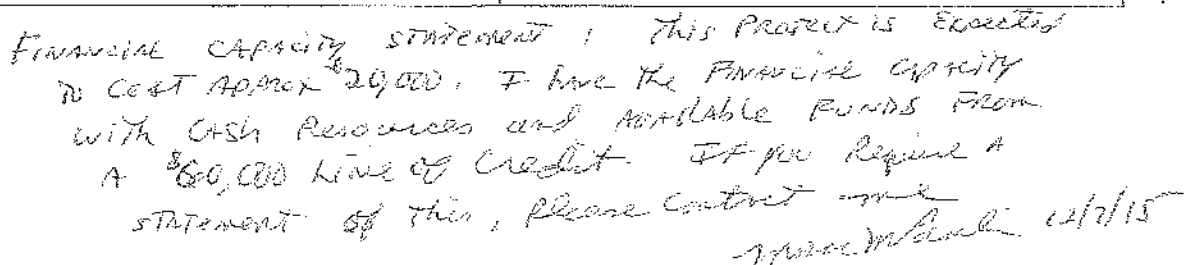 FINANCIAL CAPACITY STATEMENT : This Project is Expected
To Cost Approx $20,000. I have the Financial capacity
with Cash Resources and Available Funds From
A $60,000 Line of Credit. If you Require A
statement of this, please contact me
12/7/15